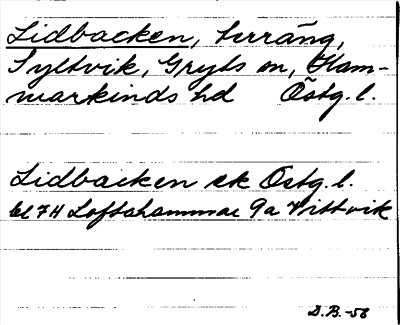 Lidbacken, terräng,
Syltvik, Gryts sn, Ham-
markinds hd Östg. l.
Lidbacken ek Östg. l.
bl 7H Loftahammar 9a Vittvik
D.B.-56